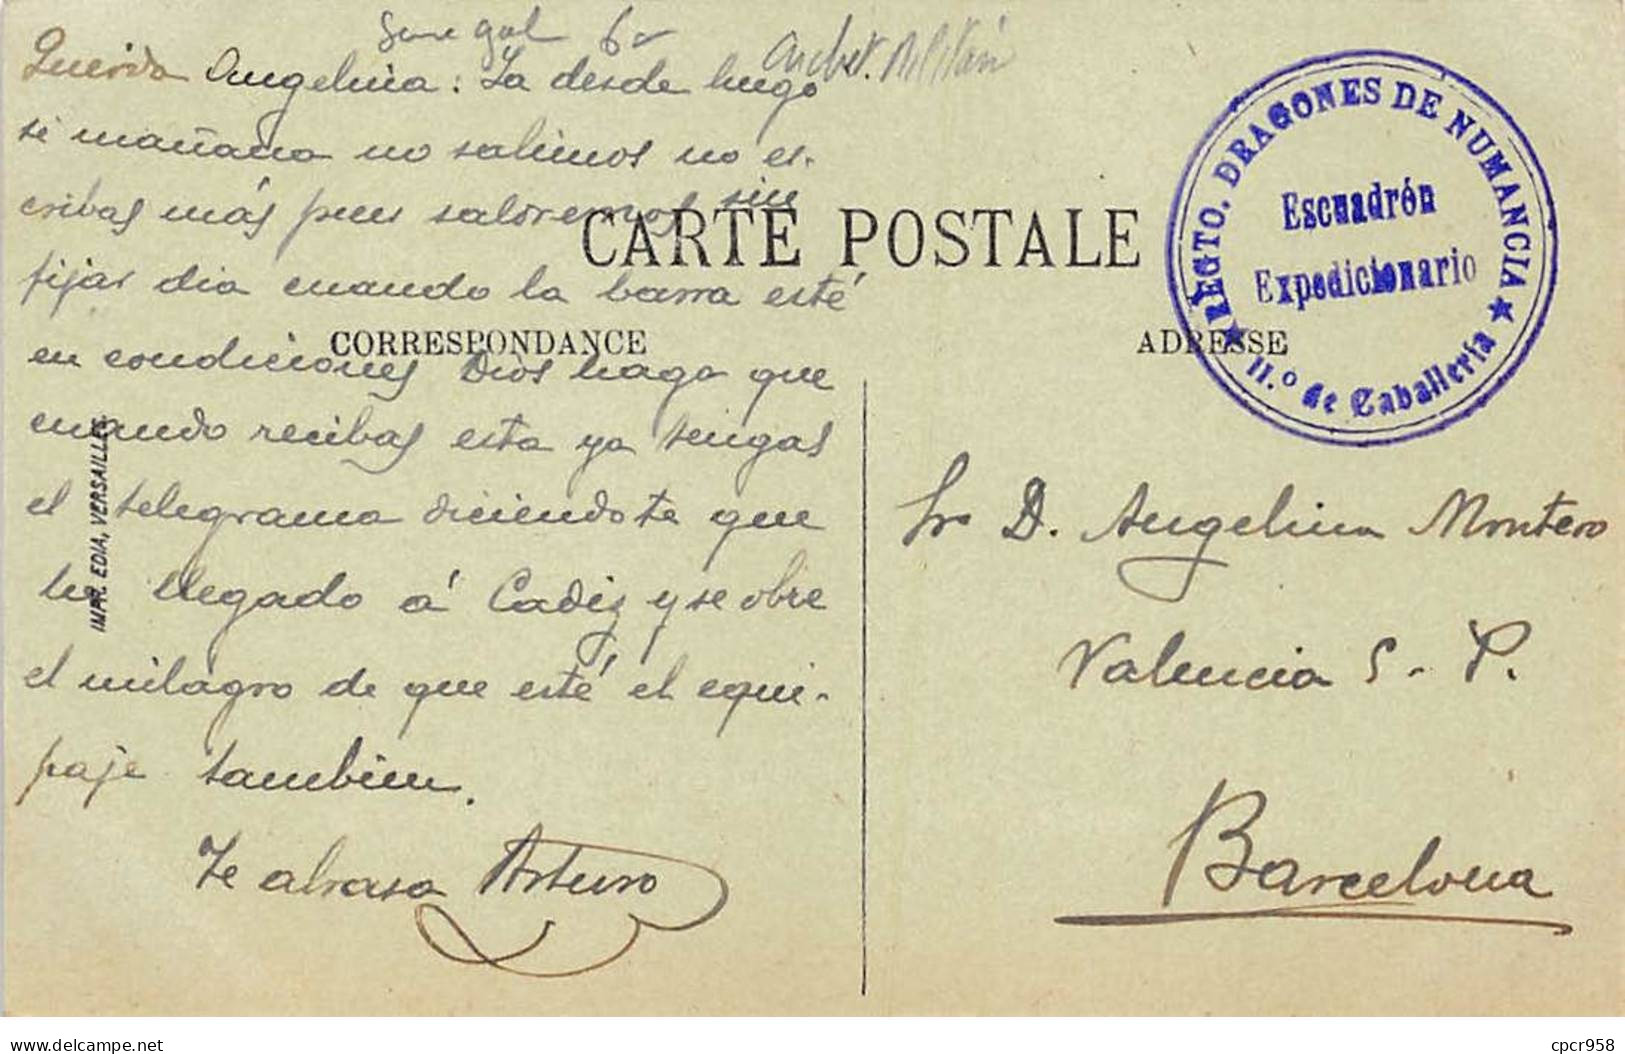 Senegal 6-
Cachet Militar
Querida Angelina: Ya desde luego
si mañana no salimos no es-
cribas más pues saldremos sin
fijar dia cuando la barra esté
en condiciones Dios haga que
cuando recibas esta ya tengas
el telegrama diciendote que
he llegado á Cadiz y se obre
el milagro de que esté el equi-
paje tambien.
Te abraza Arturo
CARTE POSTALE
CORRESPONDANCE
ADRESSE
IMPR. EDIA, VERSAILLES.
REGTO. DRAGONES DE NUMANCIA
Escuadrón
Expedicionario
★ 11.º de Caballería ★
D. Angelina Montero
Valencia 5 - P.
Barcelona
delcampe.net
cpcr958